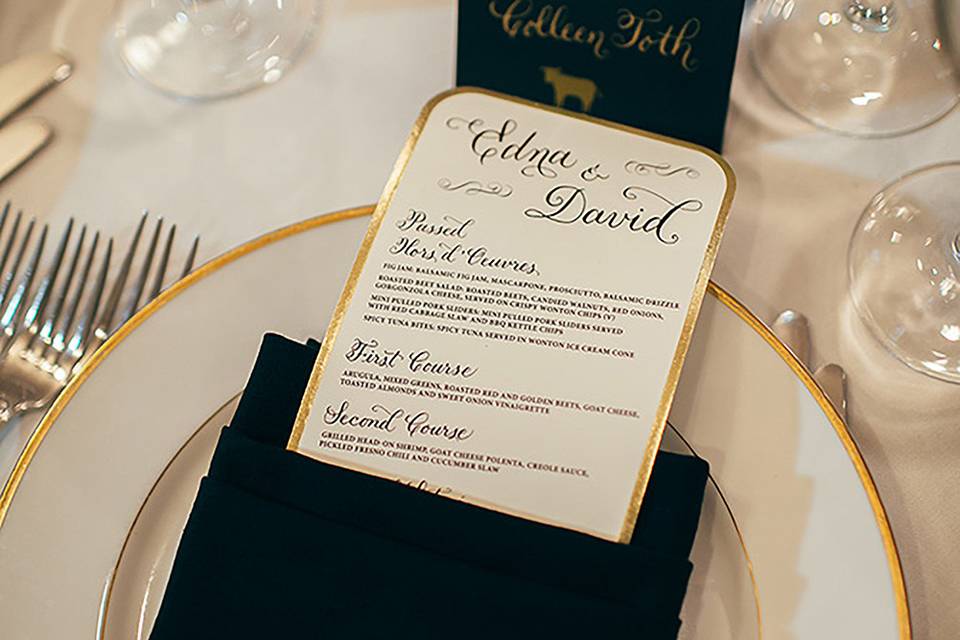 Colleen Toth
Edna &
David
Passed
Hors d'Oeuvres
FIG JAM: BALSAMIC FIG JAM, MASCARPONE, PROSCIUTTO, BALSAMIC DRIZZLE
ROASTED BEET SALAD: ROASTED BEETS, CANDIED WALNUTS, RED ONIONS,
GORGONZOLA CHEESE, SERVED ON CRISPY WONTON CHIPS (V)
MINI PULLED PORK SLIDERS: MINI PULLED PORK SLIDERS SERVED
WITH RED CABBAGE SLAW AND BBQ KETTLE CHIPS
SPICY TUNA BITES: SPICY TUNA SERVED IN WONTON ICE CREAM CONE
First Course
ARUGULA, MIXED GREENS, ROASTED RED AND GOLDEN BEETS, GOAT CHEESE,
TOASTED ALMONDS AND SWEET ONION VINAIGRETTE
Second Course
GRILLED HEAD-ON SHRIMP, GOAT CHEESE POLENTA, CREOLE SAUCE,
PICKLED FRESNO CHILI AND CUCUMBER SLAW